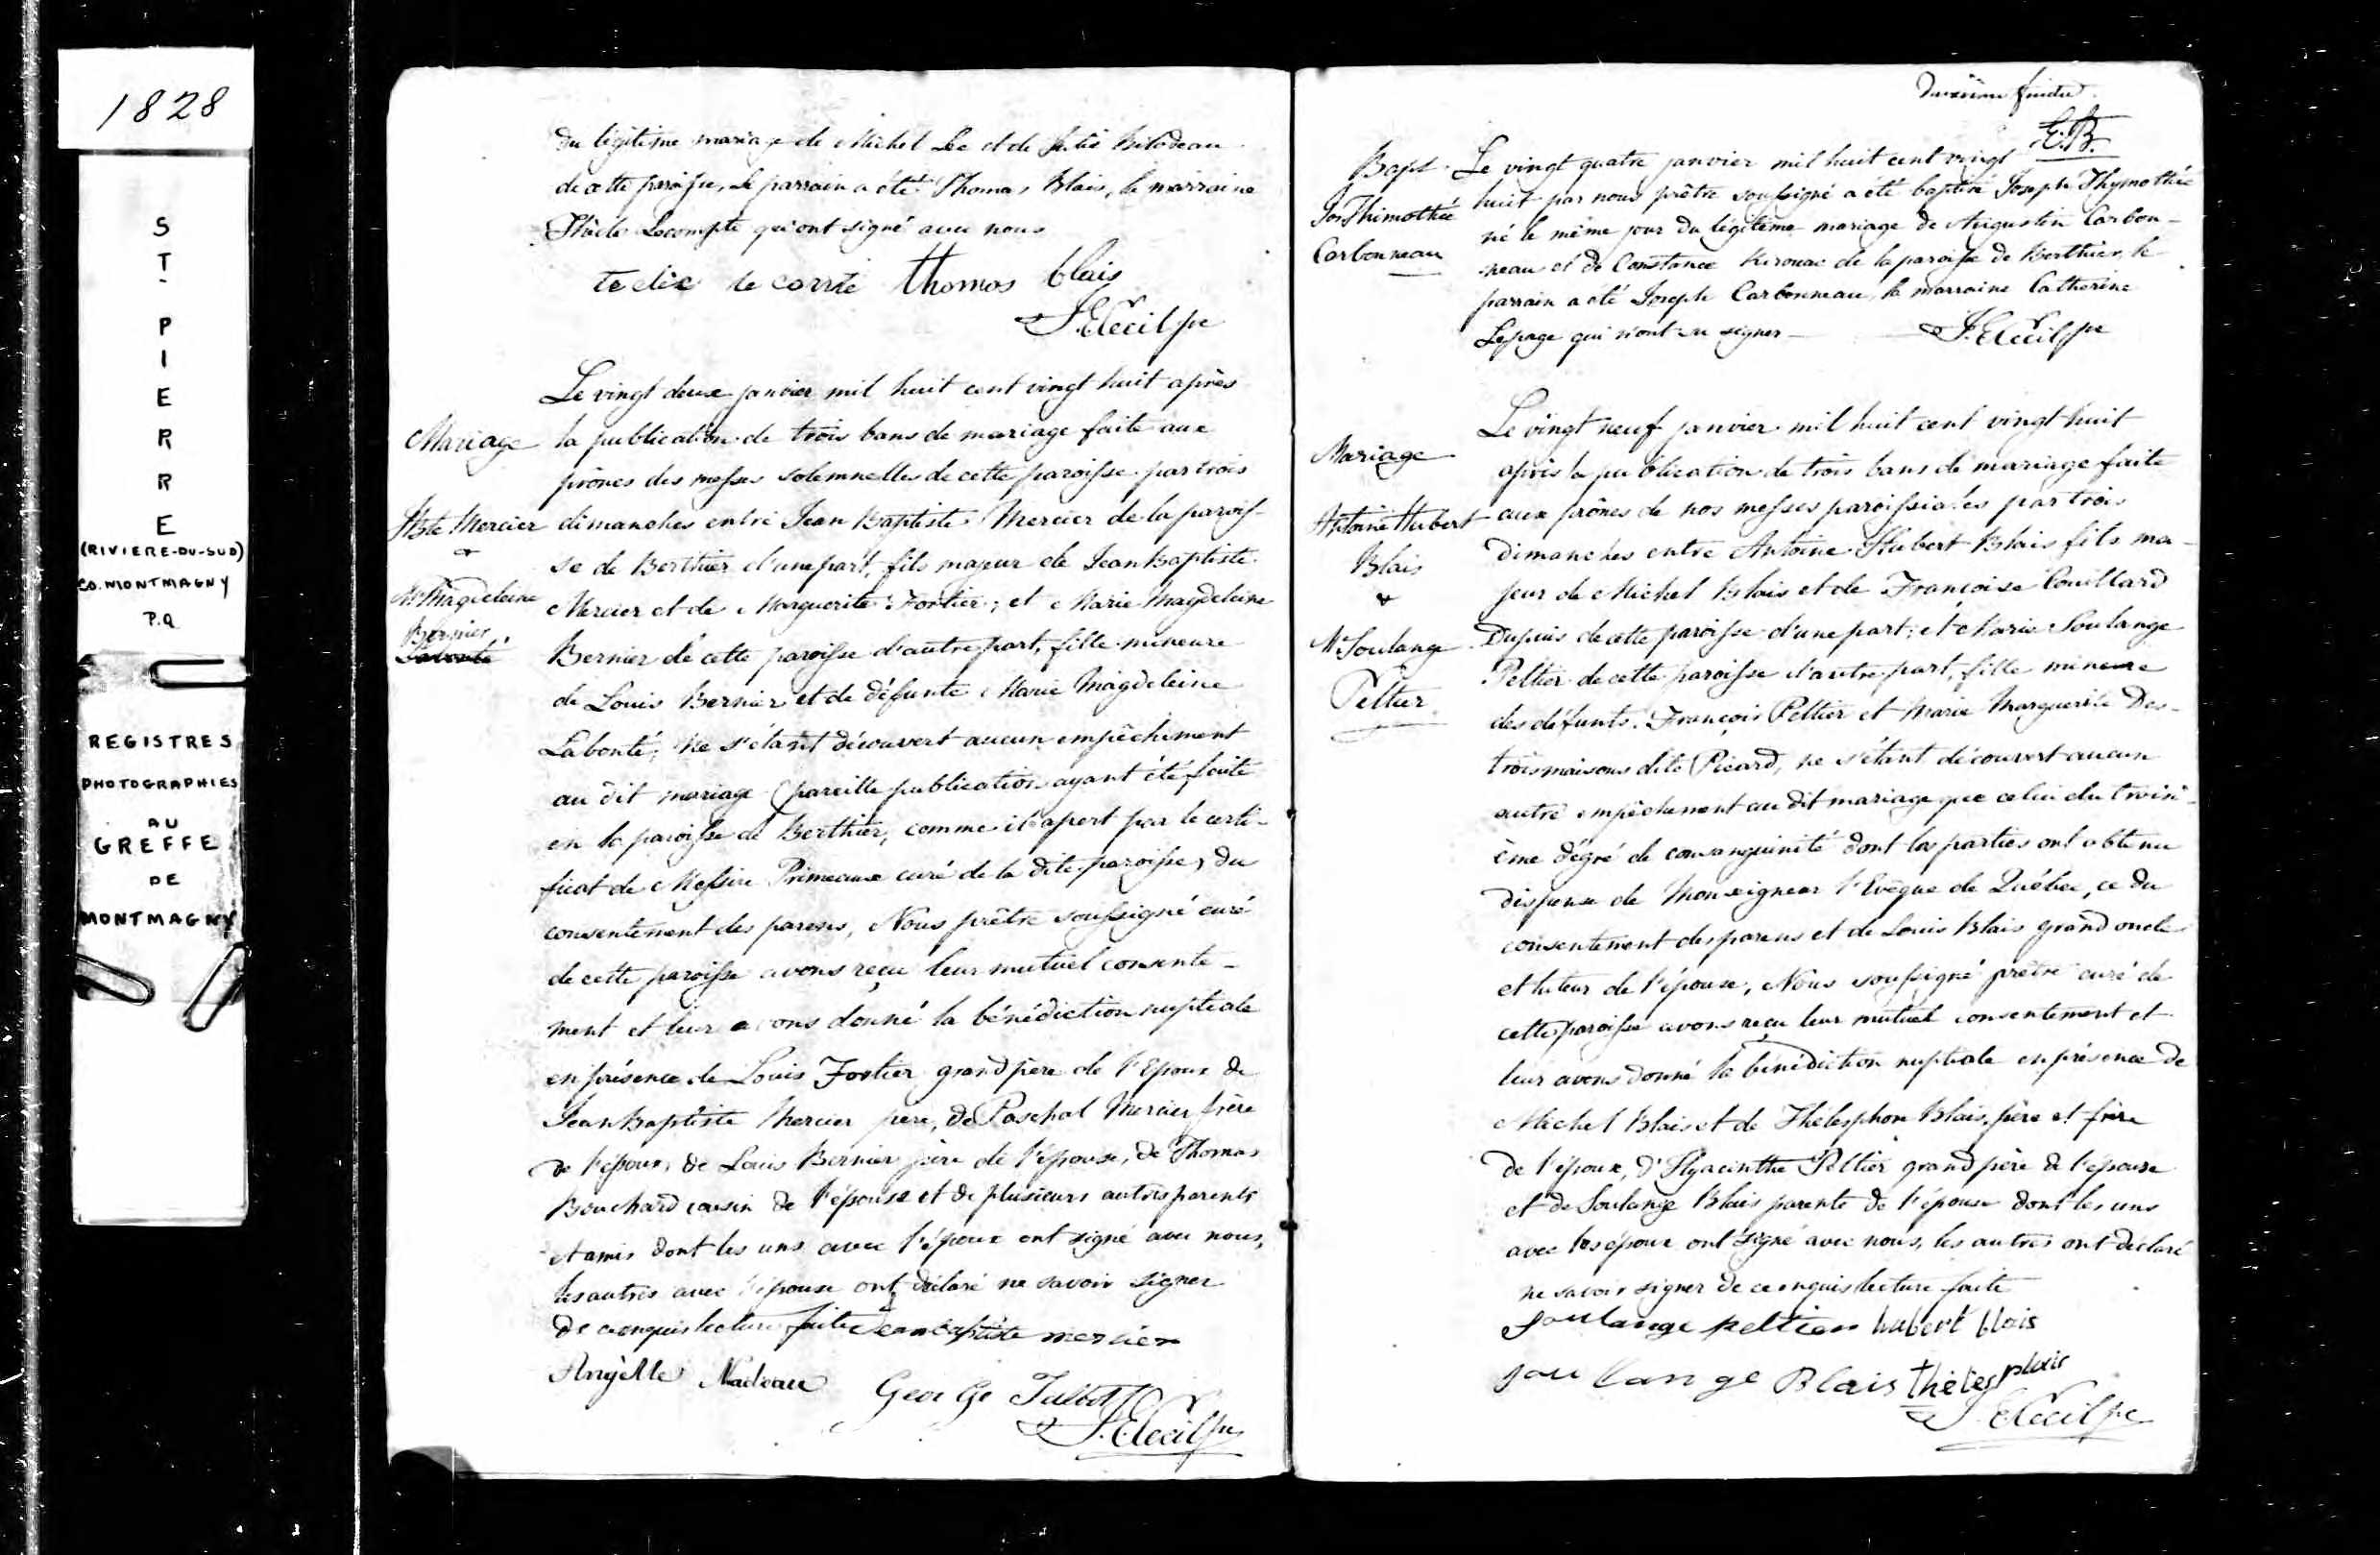 1828
ST PIERRE
(RIVIERE-DU-SUD)
CO. MONTMAGNY
P.Q
REGISTRES
PHOTOGRAPHIES
AU
GREFFE
DE
MONTMAGNY
du légitime mariage de Michel Lee et de Julie Bilodeau
de cette paroisse, le parrain a été Thomas Blais, la marraine
Thècle Lecompte qui ont signé avec nous
thomas blais
Mariage
JBte Mercier
&
M. Magdeleine
Bernier
Labonté
Le vingt deux janvier mil huit cent vingt huit après
la publication de trois bans de mariage faite aux
prônes des messes solemnelles de cette paroisse par trois
dimanches entre Jean Baptiste Mercier de la parois-
se de Berthier d'une part, fils majeur de Jean Baptiste
Mercier et de Marguerite Fortier; et Marie Magdeleine
Bernier de cette paroisse d'autre part, fille mineure
de Louis Bernier et de défunte Marie Magdeleine
Labonté; ne s'étant découvert aucun empêchement
au dit mariage (pareille publication ayant été faite
en la paroisse de Berthier, comme il apert par le certi-
ficat de Messire Primeaux curé de la dite paroisse) du
consentement des parens, Nous prêtre soussigné curé
de cette paroisse avons reçu leur mutuel consente-
ment et leur avons donné la bénédiction nuptiale
en présence de Louis Fortier grand père de l'Epoux de
Jean Baptiste Mercier père, de Paschal Mercier frère
de l'époux, de Louis Bernier père de l'épouse, de Thomas
Bouchard cousin de l'épouse et de plusieurs autres parents
et amis dont les uns avec l'époux ont signé avec nous,
les autres avec l'épouse ont déclaré ne savoir signer
de ce enquis lecture faite Jean baptiste mercier
Angèlle Nadeau George Talbot
Deuxième feuillet
E.B.
Bapt.
Jos Thimothée
Carbonneau
Le vingt quatre janvier mil huit cent vingt
huit par nous prêtre soussigné a été baptisé Joseph Thymothée
né le même jour du légitime mariage de Augustin Carbon-
neau et de Constance Kirouac de la paroisse de Berthier, le
parrain a été Joseph Carbonneau, la marraine Catherine
Lepage qui n'ont su signer
Mariage
Antoine Hubert
Blais
&
M. Soulange
Peltier
Le vingt neuf janvier mil huit cent vingt huit
après la publication de trois bans de mariage faite
aux prônes de nos messes paroissiales par trois
dimanches entre Antoine Hubert Blais fils ma-
jeur de Michel Blais et de Françoise Couillard
Dupuis de cette paroisse d'une part; et Marie Soulange
Peltier de cette paroisse d'autre part, fille mineure
des défunts François Peltier et Marie Marguerite Des-
troismaisons dite Picard, ne s'étant découvert aucun
autre empêchement au dit mariage que celui du troisi-
ème dégré de consanguinité dont les parties ont obtenu
dispense de Monseigneur l'Evêque de Québec, ce du
consentement des parens et de Louis Blais grand oncle
et tuteur de l'épouse, Nous soussigné prêtre curé de
cette paroisse avons reçu leur mutuel consentement et
leur avons donné la bénédiction nuptiale en présence de
Michel Blais et de Thelesphore Blais, père et frère
de l'époux, d'Hyacinthe Peltier grand père de l'épouse
et de Soulange Blais parente de l'épouse dont les uns
avec les époux ont signé avec nous, les autres ont déclaré
ne savoir signer de ce enquis lecture faite
Soulange peltier hubert blais
Soulange Blais